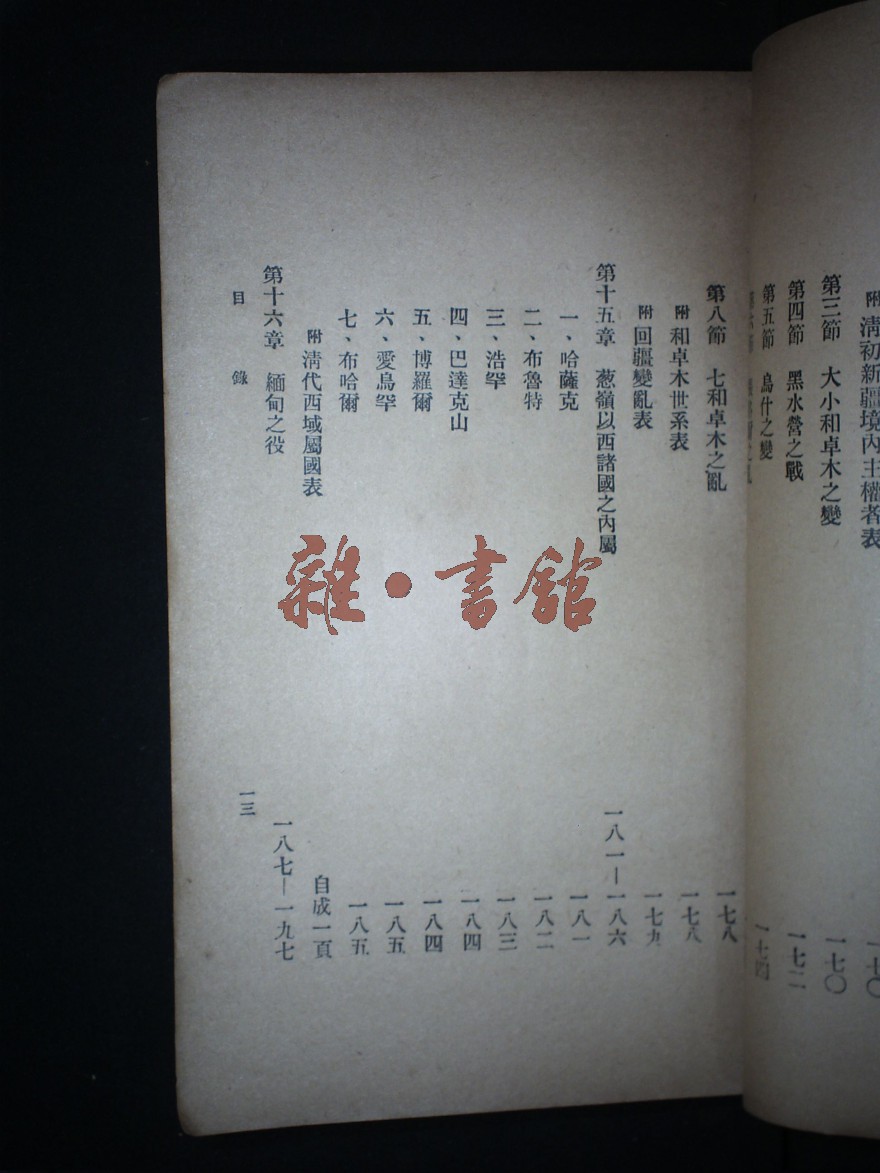 附 清初新疆境內主權者表 一七〇
第三節 大小和卓木之變 一七〇
第四節 黑水營之戰 一七二
第五節 烏什之變 一七四
第八節 七和卓木之亂 一七八
附 和卓木世系表 一七八
附 回疆變亂表 一七九
第十五章 葱嶺以西諸國之內屬 一八一—一八六
一、哈薩克 一八一
二、布魯特 一八二
三、浩罕 一八三
四、巴達克山 一八四
五、博羅爾 一八四
六、愛烏罕 一八五
七、布哈爾 一八五
附 清代西域屬國表 自成一頁
第十六章 緬甸之役 一八七—一九七
目錄 一三
雜·書館